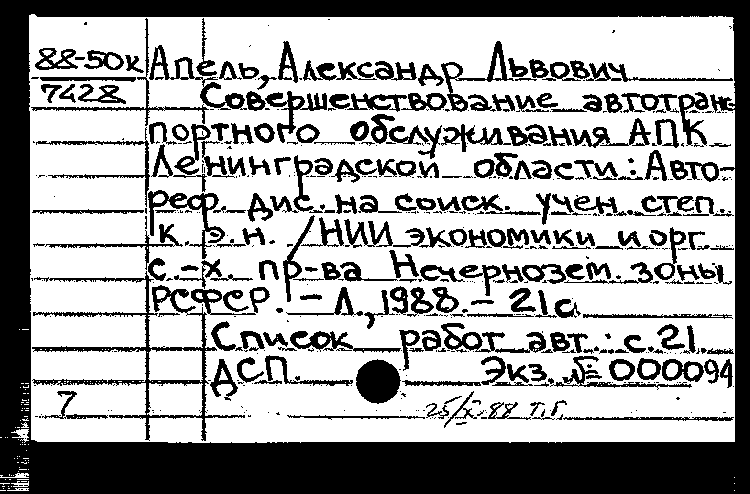 88-50к Апель, Александр Львович
7428 Совершенствование автотранс
портного обслуживания АПК
Ленинградской области : Авто-
реф. дис. на соиск. учен. степ.
к. э. н. / НИИ экономики и орг.
с.-х. пр-ва Нечернозем. зоны
РСФСР. - Л., 1988. - 21 с.
Список работ авт.: с. 21.
ДСП. Экз. № 000094
7 25/X 88 Т.Г.